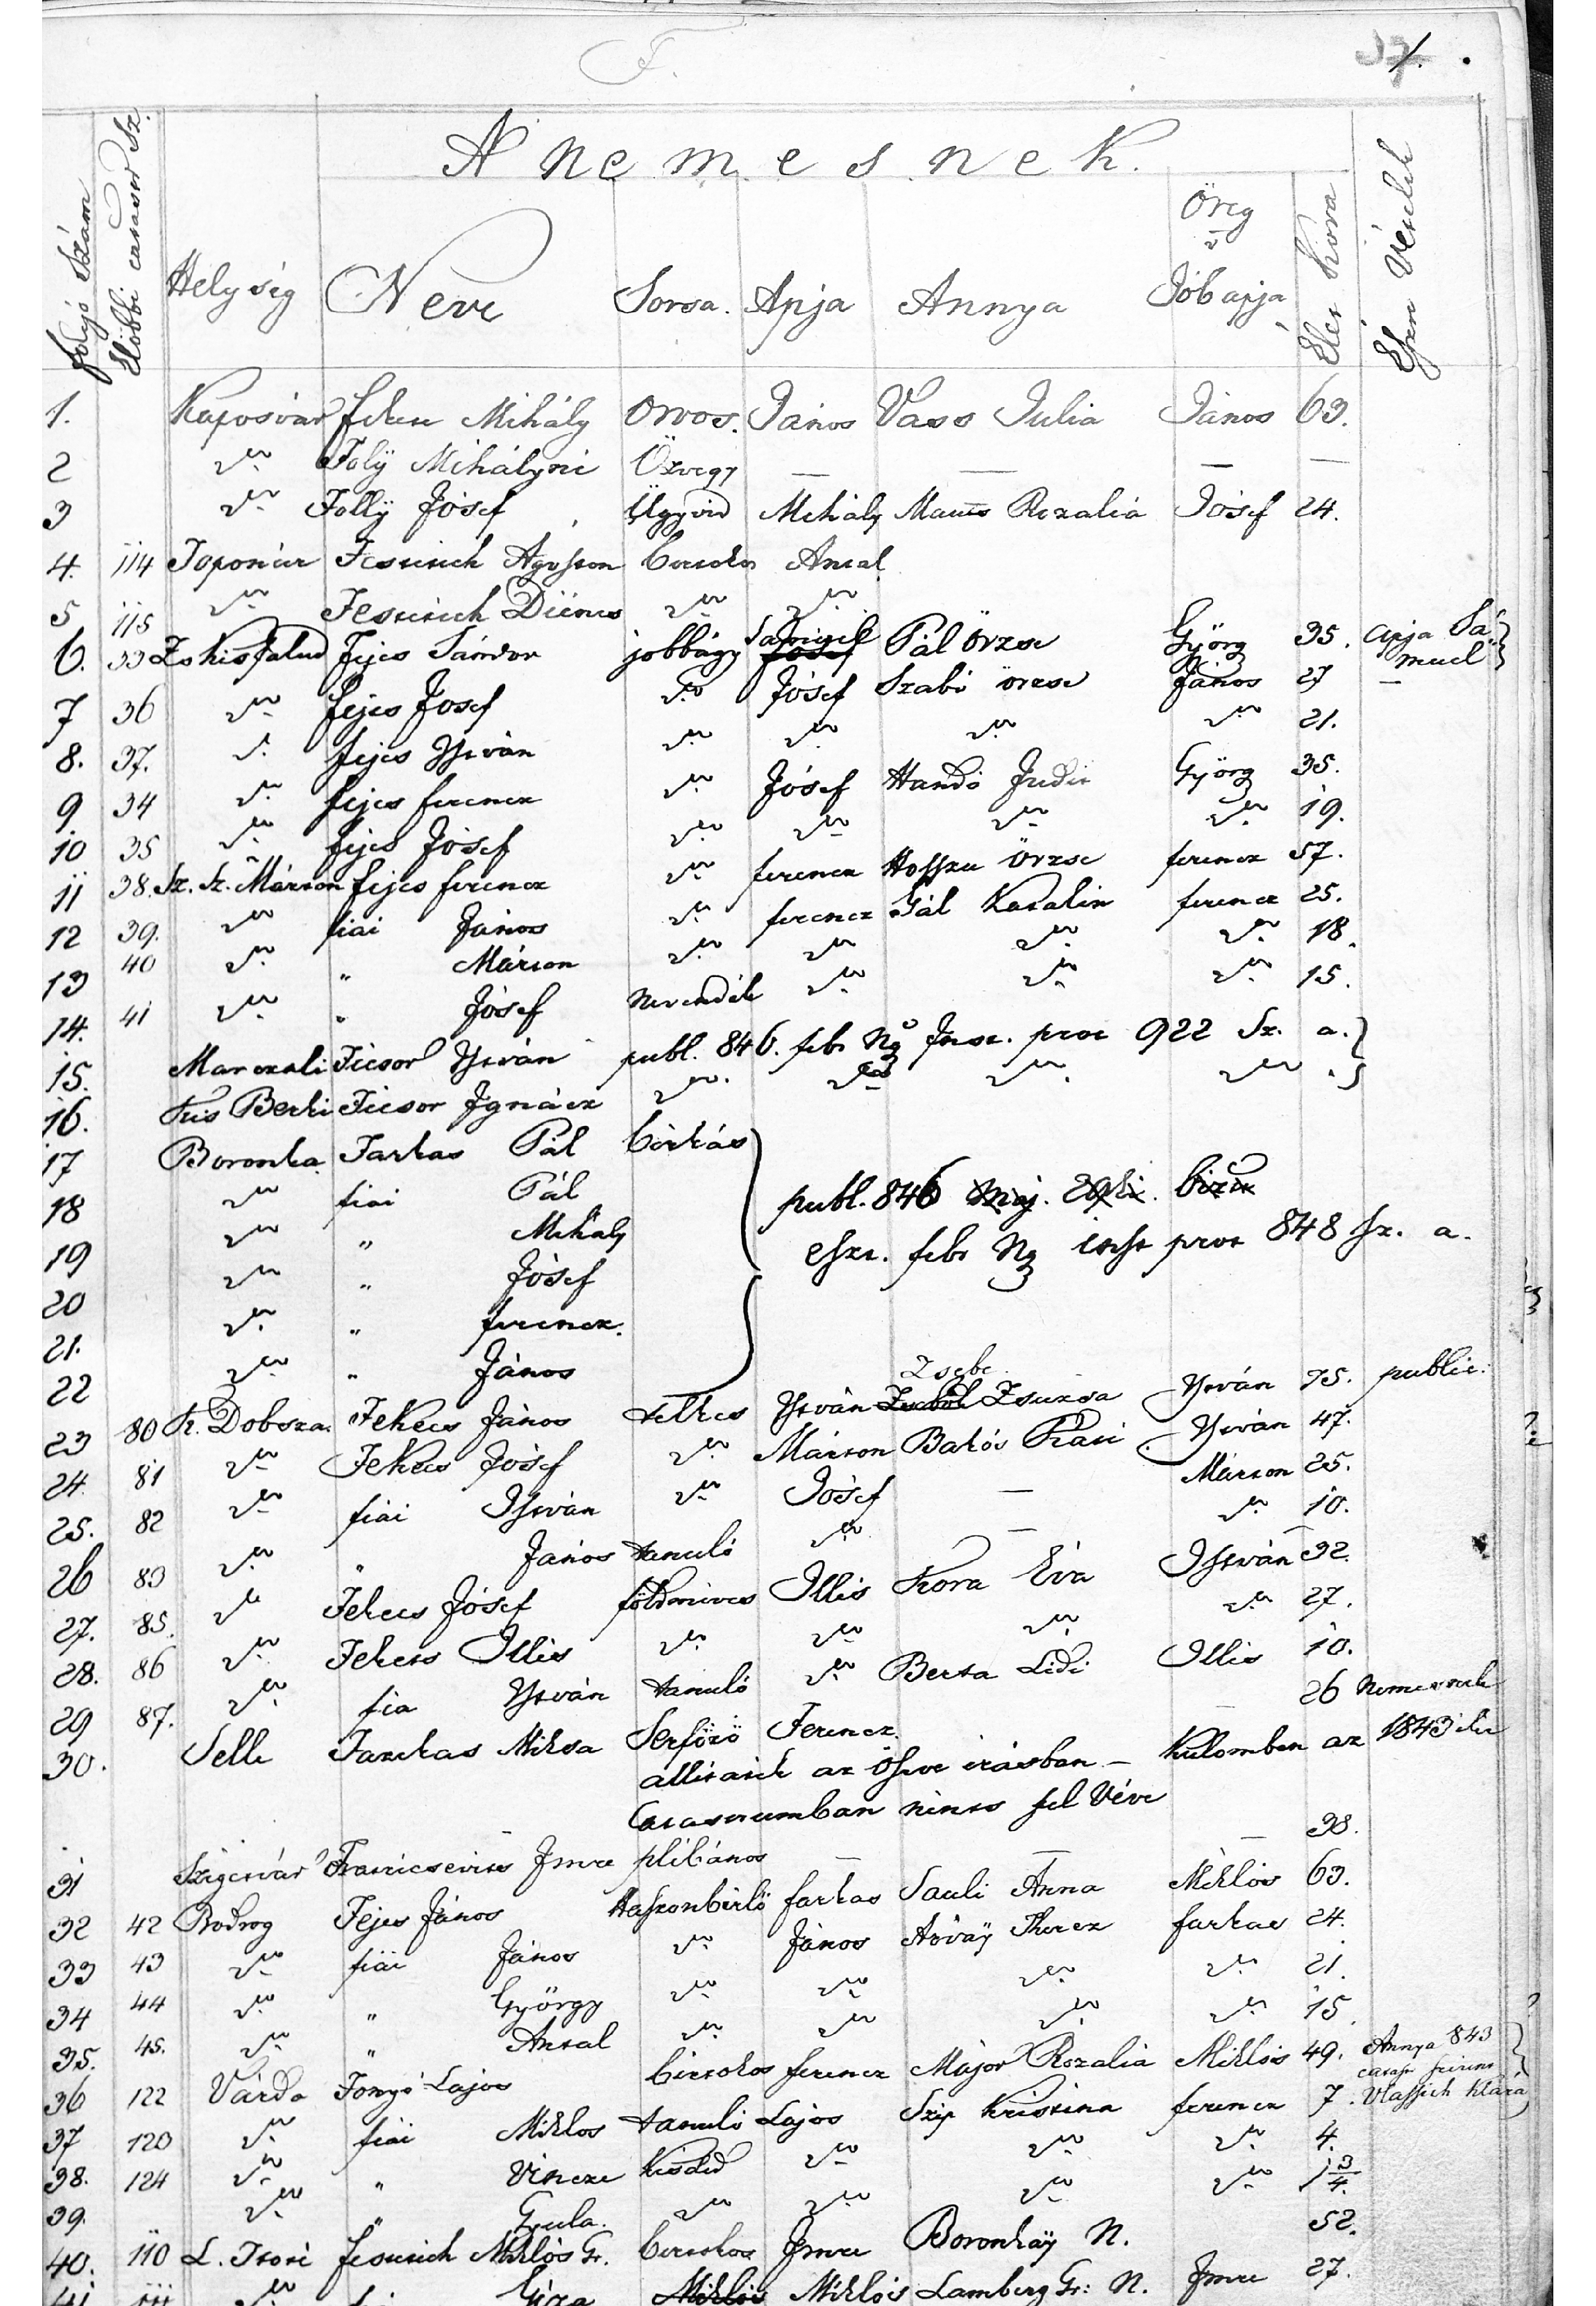 F.
37 1.
A nemesnek.
folyó Szám
Előbbi census Sz.
Helység Neve Sorsa. Apja Annya Öreg v Jóbapja Élet Kora Észre Vételek
1. Kaposvár Mihály Orvos. János Vass Julia János 63.
2 Folÿ Mihályné Özvegy — — — —
3 Follÿ Jósef Ügyvéd Mihály Rozalia Jósef 24.
4. 114 Toponár Festetich Ágoston birtokos Antal
5 115 Festetich Diénes
6. 33 Fejes Sándor jobbágy Pál Örzse György 35. apja Sámuel
7 36 fejes Josef Jósef Szabó örzse János 27
8. 37. fejes István 21.
9 34 fejes ferencz Jósef Judit György 35.
10 35 fejes Jósef 19.
11 38. Sz. Sz. Márton fejes ferencz ferencz Hoszszu Örzse ferencz 57.
12 39. fiai János ferencz Gál Katalin ferencz 25.
13 40 " Márton 18.
14. 41 " Jósef nevendék 15.
15. Marczali Ficsor István publ. 846. febr. 922 Sz. a.
16. Kis Berki Ficsor Ignácz
17 Boronka Farkas Pál birkás
18 fiai Pál publ. 846
19 " Mihály febr. 848 sz. a.
20 " Jósef
21. " ferencz.
22 " János
23 80 K. Dobsza Fekecs János telkes István Zsebe Zsuzsa István 75. public.
24. 81 Fekecs Jósef Márton Bakós Kati István 47.
25. 82 fiai István Jósef — Márton 25.
26 83 " János tanuló — 10.
27. 85. Fekecs Jósef földmives Illés Kora Éva István 32.
28. 86 Fekecs Illés 27.
29 87. fia István tanuló Berta Lidi Illés 10.
30. Selle Miksa Serfőző Ferencz — 26 Nemesnek
állitatik az irásban — Kulomben az 1843iki
nincs fel véve
31 Szigetvár Imre plébános — — — 38.
32 42 Bodrog Fejes János Haszonbérlő farkas Sauli Anna Miklós 63.
33 43 fiai János János Árvaÿ Therez farkas 24.
34 44 " György 21.
35. 45. " Antal 15
36 122 Várda Fonyó Lajos birtokos ferencz Májor Rozalia Miklós 49. Annya 843
37 120 fiai Miklos tanuló Lajos Szép Kristina ferencz 7. Vlassich Klára
38. 124 " Vincze Kisded 4.
39. " Gyula. 1 3/4.
40. 110 festetich Miklós Gr. birtokos Imre Boronkaÿ N. 52.
41 111 Géza Miklós Lamberg Gr: N. Imre 27.